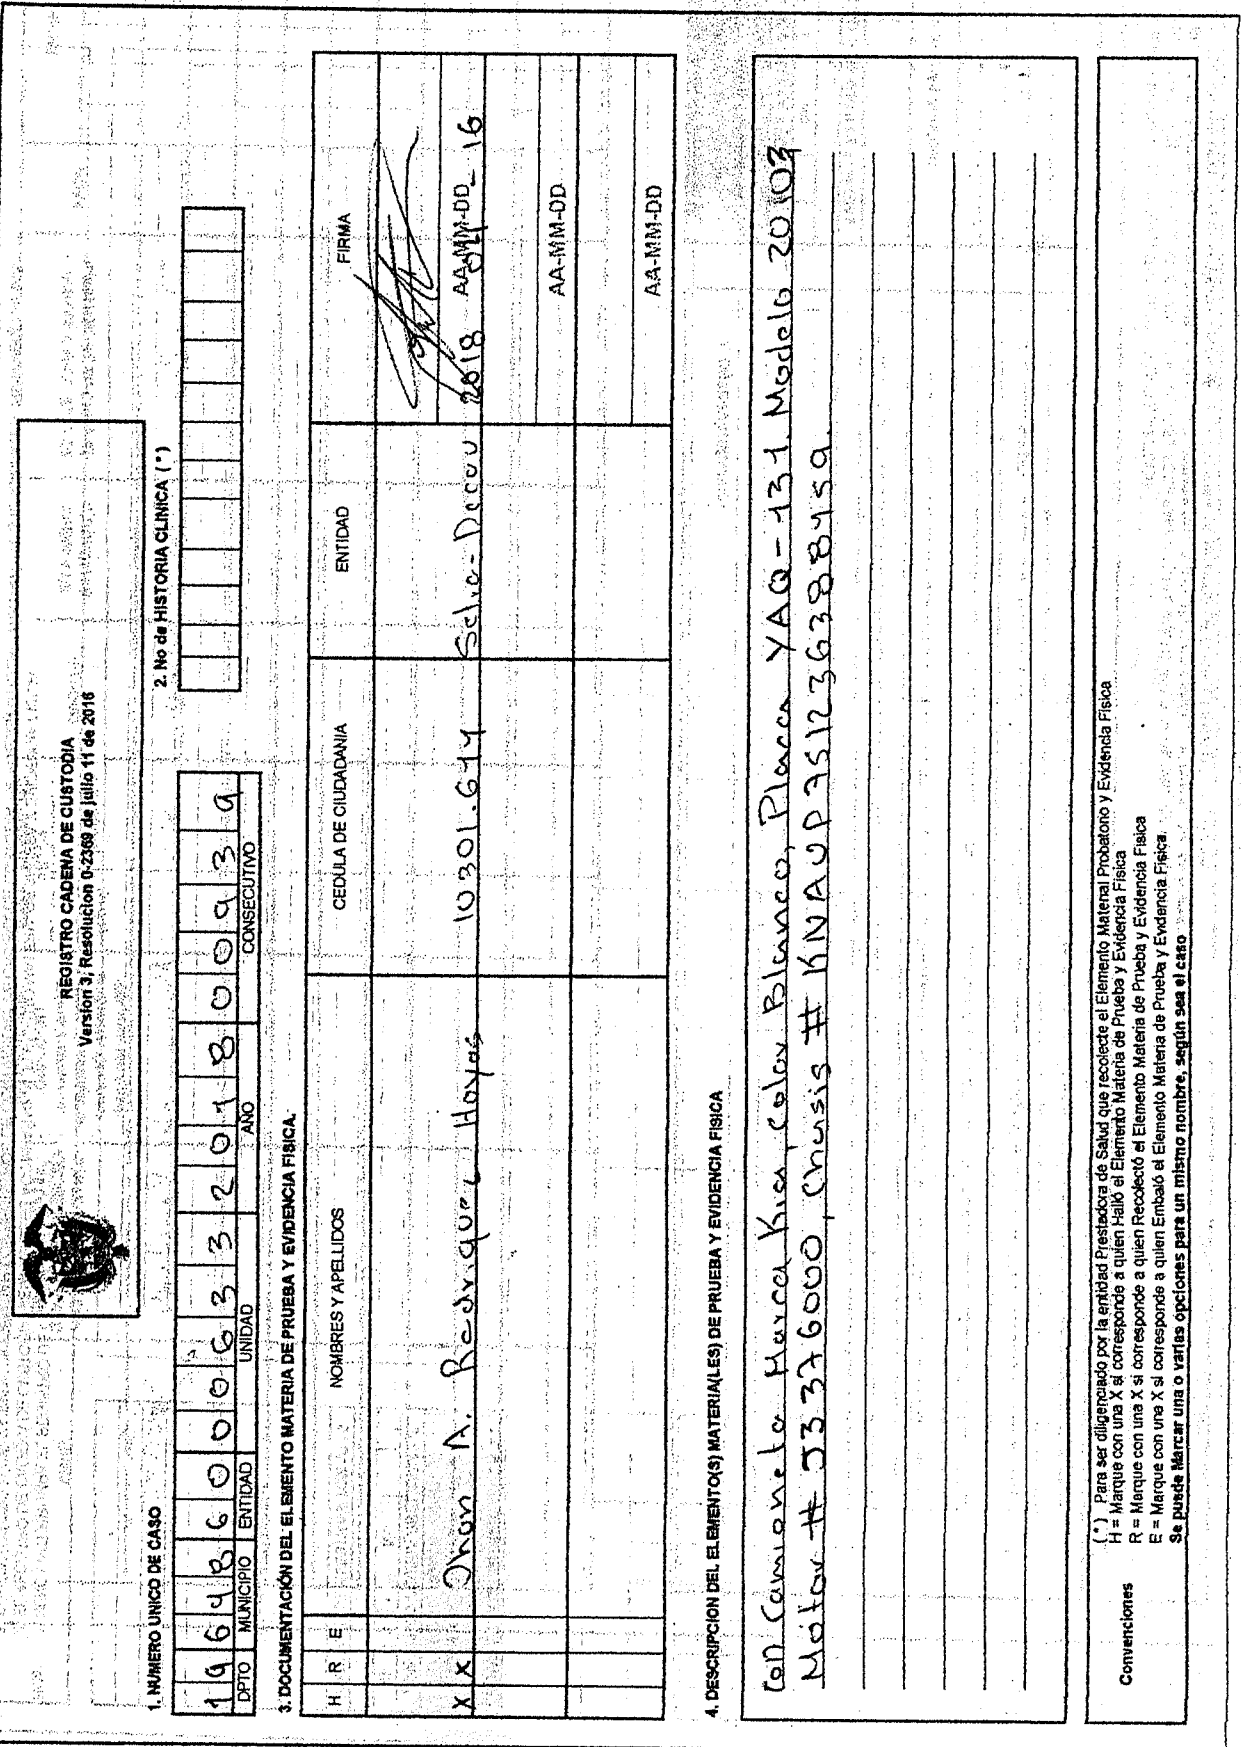 REGISTRO CADENA DE CUSTODIA
Version 3, Resolucion 0-2369 de julio 11 de 2016
1. NUMERO UNICO DE CASO
1 9 6 4 8 6 0 0 0 6 3 3 2 0 1 8 0 0 9 3 9
DPTO MUNICIPIO ENTIDAD UNIDAD AÑO CONSECUTIVO
2. No de HISTORIA CLINICA (*)
3. DOCUMENTACIÓN DEL ELEMENTO MATERIA DE PRUEBA Y EVIDENCIA FISICA.
H R E NOMBRES Y APELLIDOS CEDULA DE CIUDADANIA ENTIDAD FIRMA
X X Jhon A. Rodriguez Hoyos 10301.644 2018 AA-MM-DD 04 - 16
AA-MM-DD
AA-MM-DD
4. DESCRIPCION DEL ELEMENTO(S) MATERIA(LES) DE PRUEBA Y EVIDENCIA FISICA
(01) Camioneta Marca Kia, Color Blanco, Placa YAQ-131. Modelo
Motor # J3376000, Chasis # KNAUP751236388459.
Convenciones
(*) Para ser diligenciado por la entidad Prestadora de Salud que recolecte el Elemento Material Probatorio y Evidencia Física
H = Marque con una X si corresponde a quien Halló el Elemento Materia de Prueba y Evidencia Física
R = Marque con una X si corresponde a quien Recolectó el Elemento Materia de Prueba y Evidencia Física
E = Marque con una X si corresponde a quien Embaló el Elemento Materia de Prueba y Evidencia Física.
Se puede Marcar una o varias opciones para un mismo nombre, según sea el caso